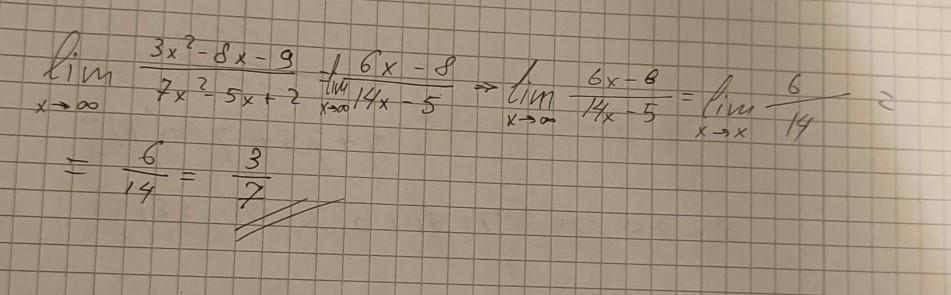 lim x→∞ 3x²-8x-9 / 7x²-5x+2 = lim x→∞ 6x-8 / 14x-5 => lim x→∞ 6x-8 / 14x-5 = lim x→x 6 / 14 =
= 6 / 14 = 3 / 7